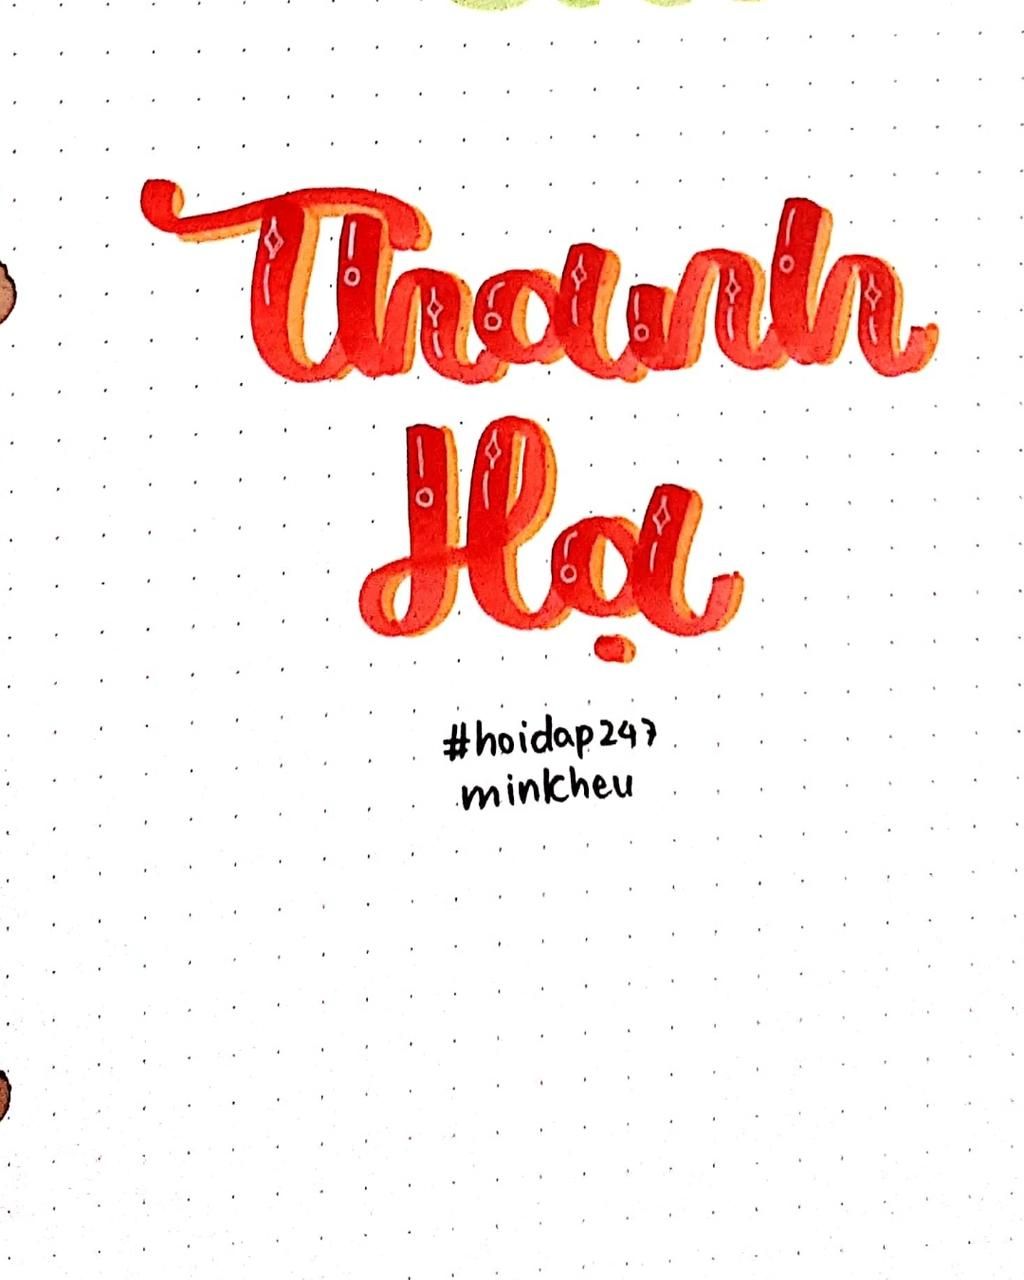 Thanh
Hạ
#hoidap247
minkcheu